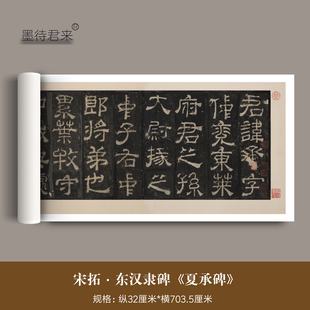 墨待君来
君諱承字
仲兖東萊
府君之孫
大尉掾之
中子右中
郎將弟也
累葉牧守
宋拓·东汉隶碑《夏承碑》
规格:纵32厘米*横703.5厘米